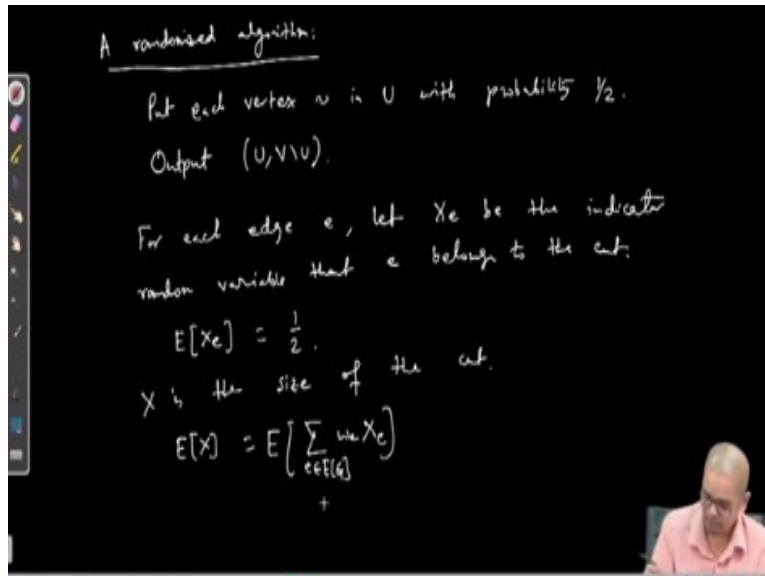 A randomised algorithm:
Put each vertex v in U with probability 1/2.
Output (U, V\U).
For each edge e, let Xe be the indicator
random variable that e belongs to the cut.
E[Xe] = 1/2.
X is the size of the cut.
E[X] = E[∑ e∈E[G] we Xe]